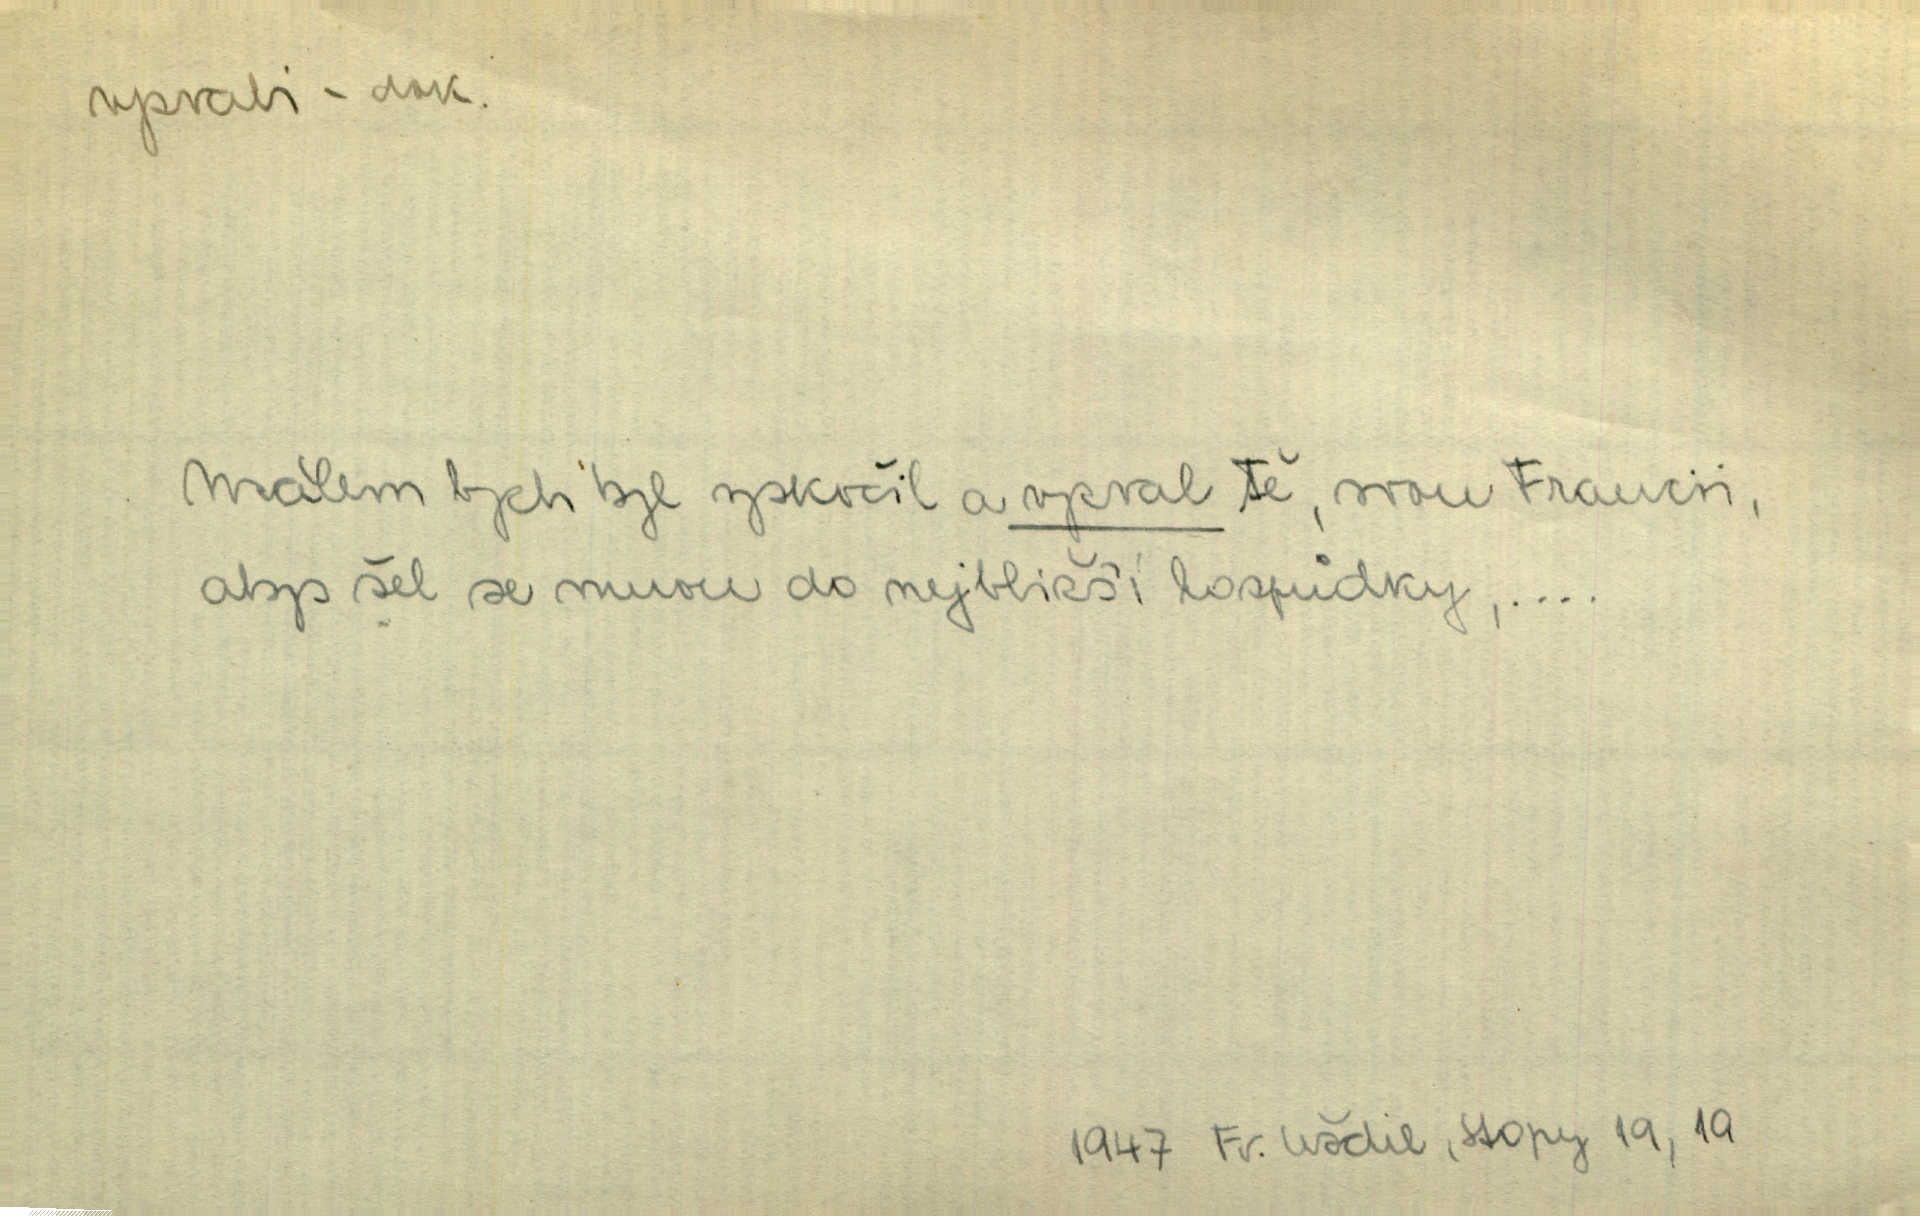 vyzvati - dok.
Málem bych byl vyskočil a vyzval Tě, svou Francii,
abys šel se mnou do nejbližší hospůdky, ....
1947 Fr. Uždil, Stopy 19, 19